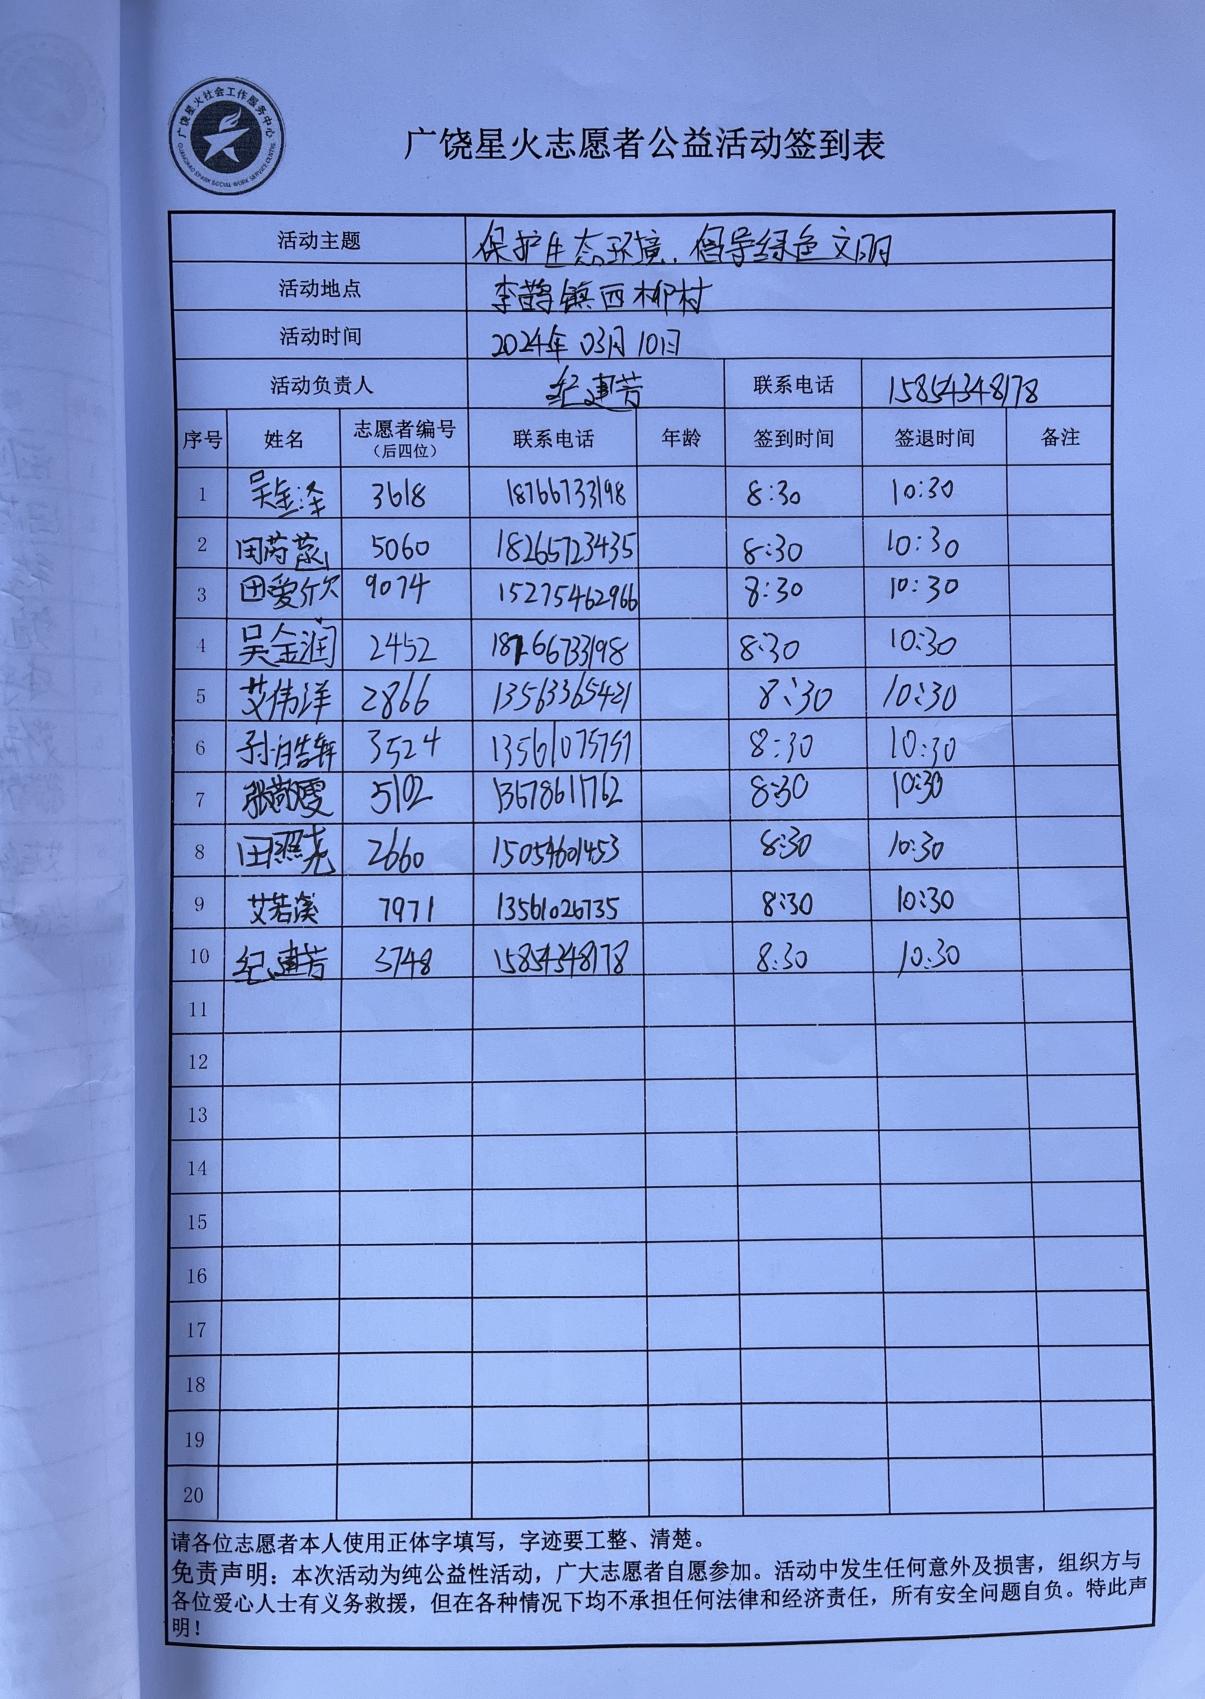 广饶星火社会工作服务中心
GUANGRAO SPARK SOCIAL WORK SERVICE CENTRE
广饶星火志愿者公益活动签到表
活动主题 保护生态环境,倡导绿色文明
活动地点 李鹊镇西柳村
活动时间 2024年03月10日
活动负责人 纪建芳 联系电话 15854348178
序号 姓名 志愿者编号(后四位) 联系电话 年龄 签到时间 签退时间 备注
1 吴金泽 3618 18766733198 8:30 10:30
2 田芮蕊 5060 18265723435 8:30 10:30
3 田爱欣 9074 15275462966 8:30 10:30
4 吴金润 2452 18766733198 8:30 10:30
5 艾伟洋 2866 13563365421 8:30 10:30
6 3524 13561075757 8:30 10:30
7 张敬雯 5102 13678611762 8:30 10:30
8 田照尧 2660 15054601453 8:30 10:30
9 艾若溪 7971 13561026735 8:30 10:30
10 纪建芳 3748 15854348178 8:30 10:30
11
12
13
14
15
16
17
18
19
20
请各位志愿者本人使用正体字填写,字迹要工整、清楚。
免责声明:本次活动为纯公益性活动,广大志愿者自愿参加。活动中发生任何意外及损害,组织方与
各位爱心人士有义务救援,但在各种情况下均不承担任何法律和经济责任,所有安全问题自负。特此声
明!